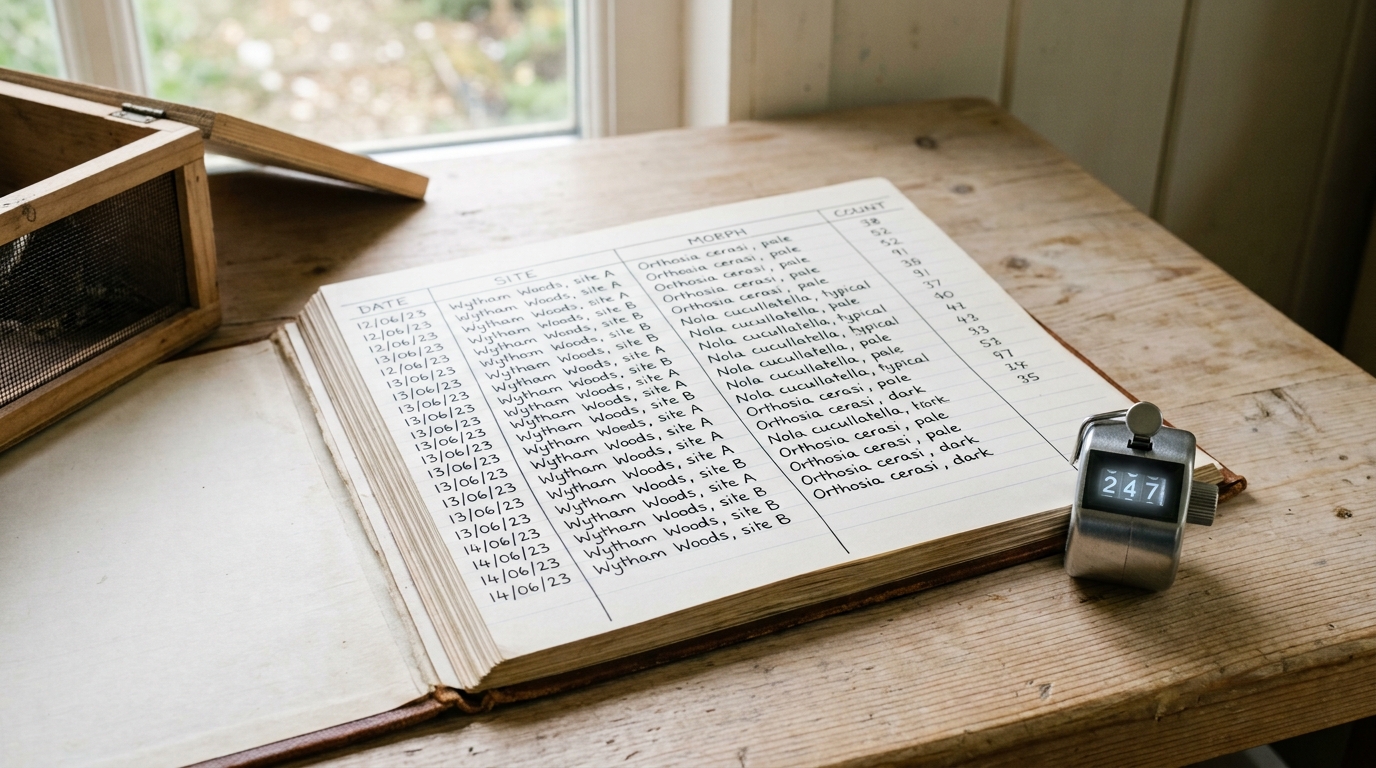 DATE SITE MORPH COUNT
12/06/23 Wytham Woods, site A Orthosia cerasi, pale 38
12/06/23 Wytham Woods, site A Orthosia cerasi, pale 52
12/06/23 Wytham Woods, site A Orthosia cerasi, pale 52
13/06/23 Wytham Woods, site B Orthosia cerasi, pale 91
12/06/23 Wytham Woods, site B Nola cucullatella, typical 36
13/06/23 Wytham Woods, site B Nola cucullatella, pale 91
13/06/23 Wytham Woods, site A Nola cucullatella, typical 37
13/06/23 Wytham Woods, site A Nola cucullatella, pale 40
13/06/23 Wytham Woods, site B Nola cucullatella, pale
13/06/23 Wytham Woods, site A Nola cucullatella, typical 43
13/06/23 Wytham Woods, site A Orthosia cerasi, pale 33
13/06/23 Wytham Woods, site B Orthosia cerasi, dark 52
13/06/23 Wytham Woods, site A Nola cucullatella, tork 97
13/06/23 Wytham Woods, site B Orthosia cerasi, pale
14/06/23 Wytham Woods, site B Orthosia cerasi, dark 35
14/06/23 Wytham Woods, site B Orthosia cerasi, dark
14/06/23
247